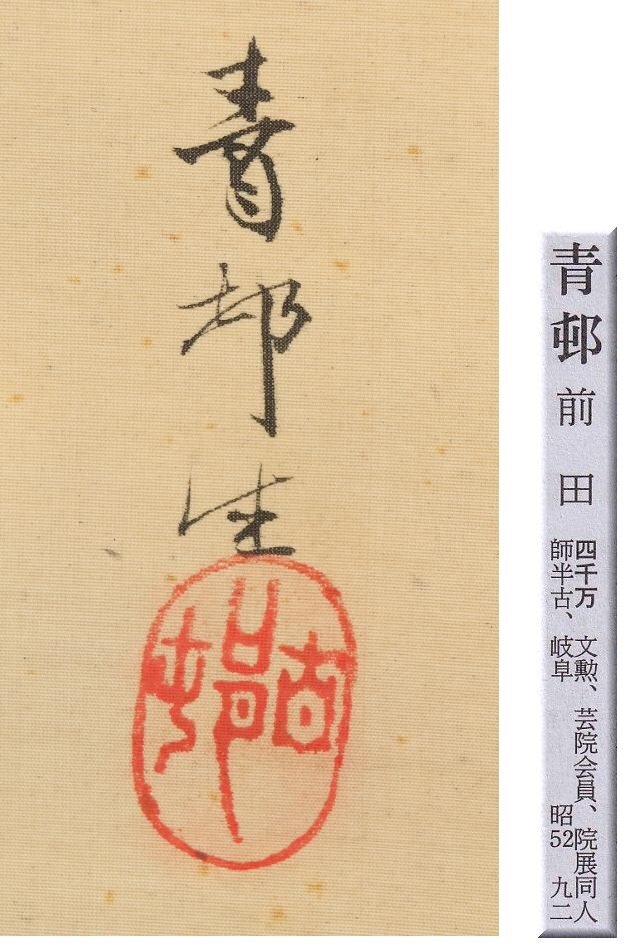 青邨生
青邨 前田
四千万 文勲、芸院会員、院展同人
師半古、岐阜 昭52 九二